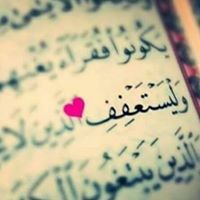 يَكُونُوا۟ فُقَرَآءَ يُغْنِهِمُ
وَلْيَسْتَعْفِفِ ٱلَّذِينَ لَا
ٱلَّذِينَ يَبْتَغُونَ